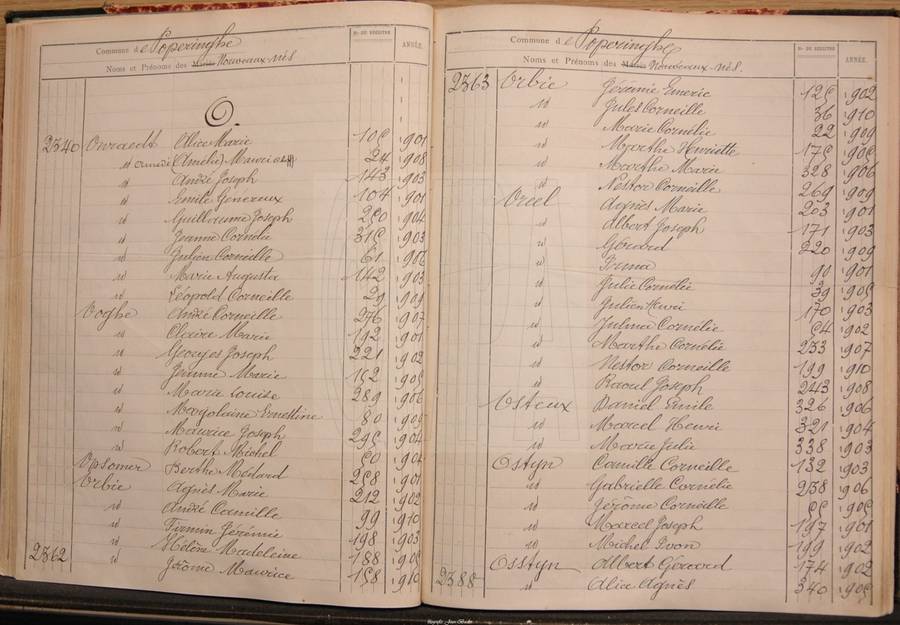 Commune de Poperinghe
Nos DU REGISTRE
ANNÉE.
Noms et Prénoms des Mariés Nouveaux-nés
O.
2340 Onraedt Alice Marie 105 1901
id Amedé (Amelie) Maurice 24 1908
id André Joseph 143 1903
id Emile Généreux 104 1901
id Guillaume Joseph 250 1904
id Jeanne Cornélie 315 1903
id Julien Corneille 61 1906
id Marie Augusta 142 1903
id Léopold Corneille 29 1909
Ooghe André Corneille 276 1907
id Claire Marie 192 1901
id Georges Joseph 221 1902
id Jeanne Marie 152 1905
id Marie Louise 289 1906
id Marjolaine Ernestine 80 1905
id Maurice Joseph 295 1904
id Robert Michel 50 1904
Opsomer Berthe Médard 258 1901
Orbie Agnès Marie 212 1902
id André Camille 99 1910
id Firmin Jérémie 198 1903
id Hélène Madeleine 188 1905
2362 id Jérôme Maurice 158 1910
Commune de Poperinghe
Nos DU REGISTRE
ANNÉE.
Noms et Prénoms des Mariés Nouveaux-nés.
2363 Orbie Jérémie Emeric 125 1902
id Jules Corneille 36 1910
id Marie Cornélie 22 1909
id Marthe Henriette 175 1905
id Marthe Marie 328 1906
id Nestor Corneille 269 1909
Oreel Agnès Marie 203 1901
id Albert Joseph 171 1903
id Gérard 220 1909
id Irma 90 1901
id Julie Cornélie 39 1905
id Julien Henri 170 1903
id Julma Cornélie 54 1902
id Marthe Cornélie 233 1907
id Nestor Corneille 199 1910
id Raoul Joseph 243 1908
Osteux Daniel Emile 326 1906
id Marcel Henri 321 1904
id Marie Julie 338 1903
Ostyn Camille Corneille 132 1903
id Gabrielle Cornélie 238 1906
id Jérôme Corneille 55 1905
id Marcel Joseph 197 1901
id Michel Ivon 199 1902
Osstyn Albert Gérard 174 1902
2388 id Alice Agnès 340 1905